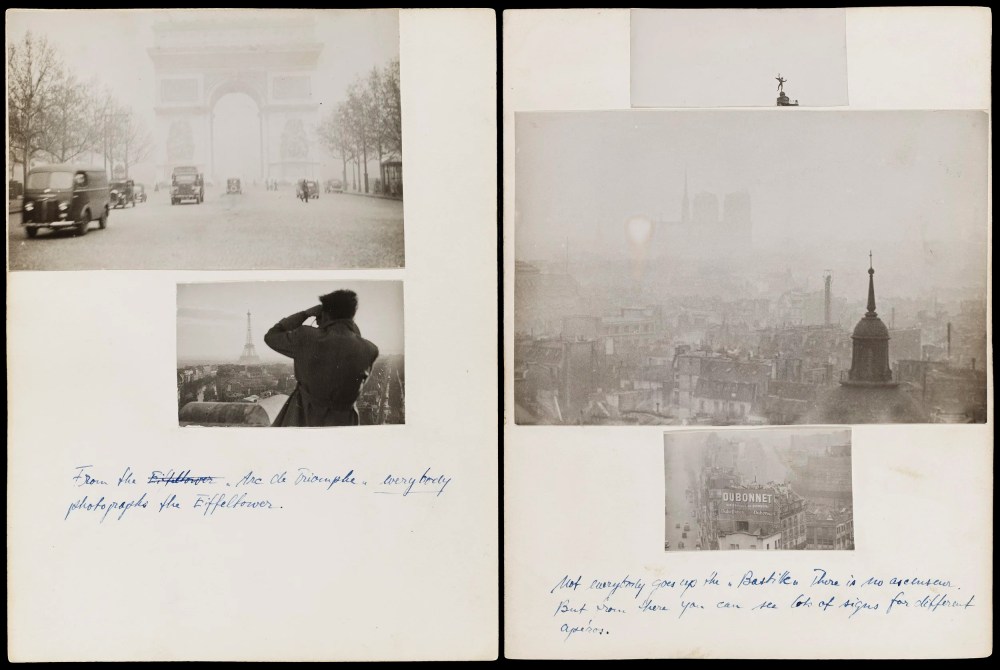 From the Eiffeltower „Arc de Triomphe„ everybody
photographs the Eiffeltower.
DUBONNET
Not everybody goes up the „Bastille„ There is no ascenseur.
But from there you can see lots of signs for different
apéros.